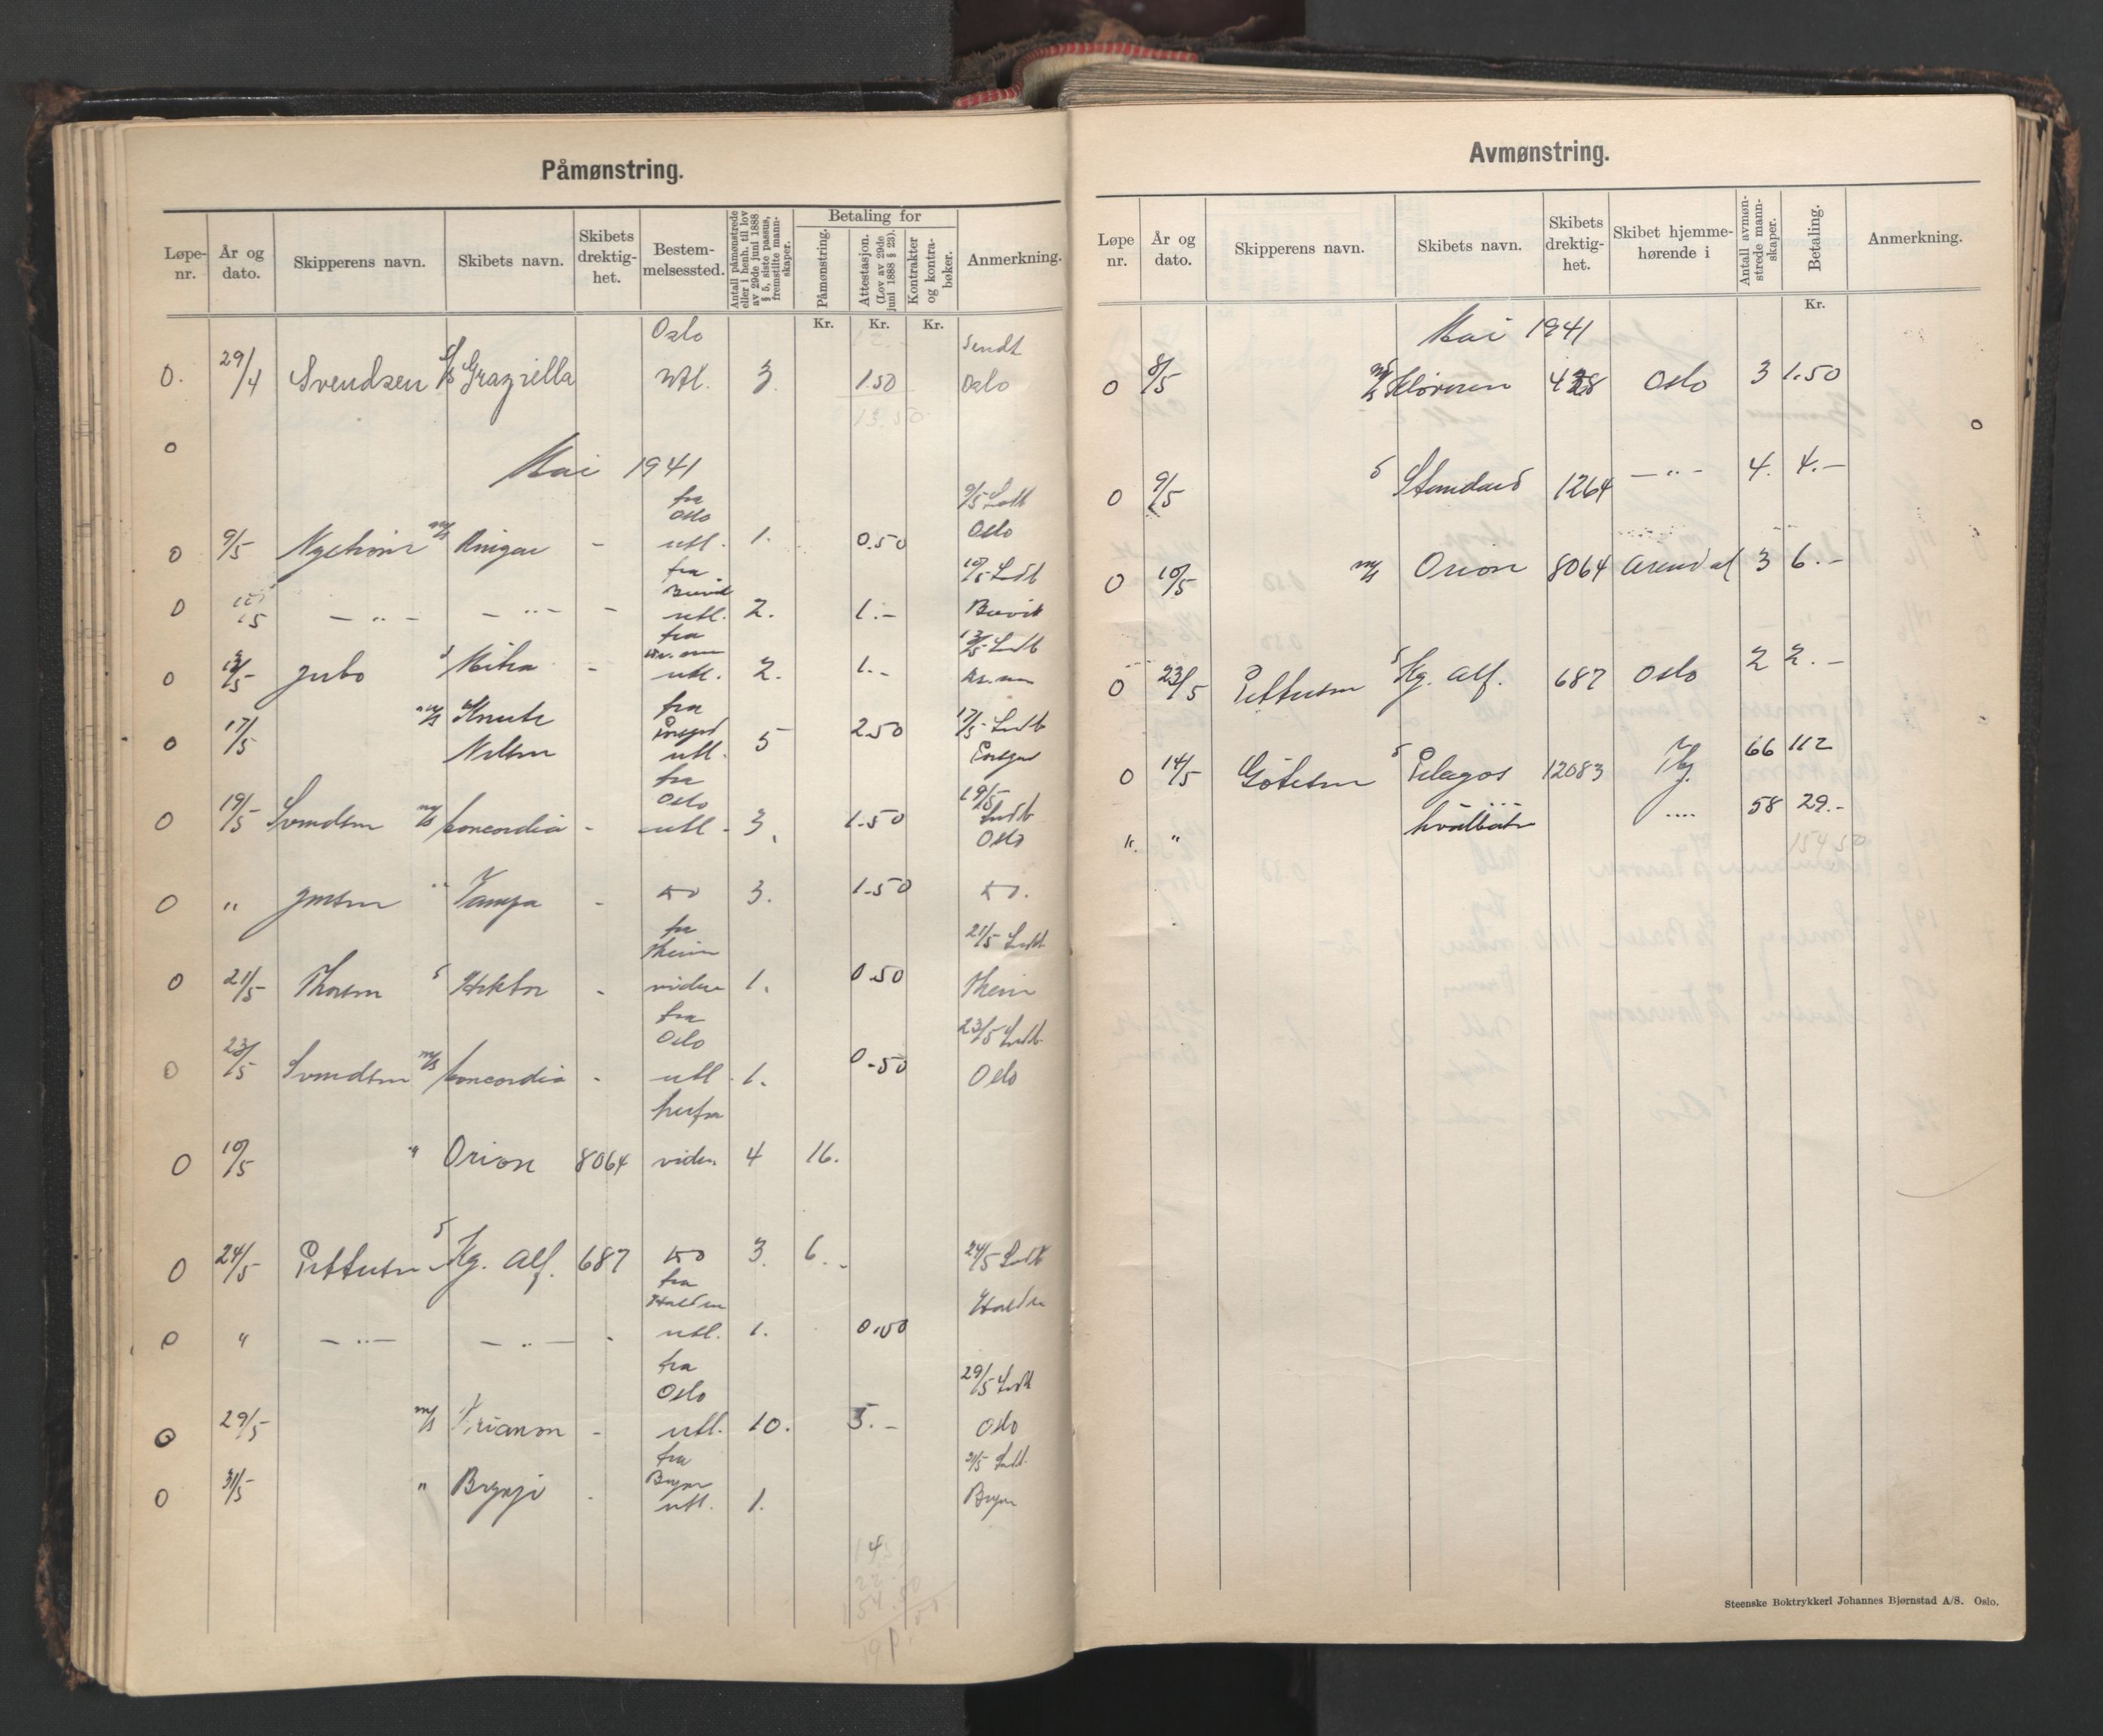 Påmønstring.
Løpe-nr. År og dato. Skipperens navn. Skibets navn. Skibets drektig-het. Bestem-melsessted. Antall påmønstrede eller i henh. til lov av 29de juni 1888 § 5, siste passus, fremstilte mann-skaper. Betaling for Påmønstring. Attestasjon. (Lov av 29de juni 1888 § 23). Kontrakter og kontra-bøker. Anmerkning.
Kr. Kr. Kr.
Oslo Sendt
0. 29/4 Svendsen S/S Graziella utl. 3. 1.50 Oslo
13.50
0
Mai 1941
fra Oslo 9/5 Sendt
0 9/5 m/s - utl. 1. 0.50 Oslo
fra Brevik 10/5 Sendt
0 10/5 — " — — " — - utl. 2. 1.— Brevik
fra 13/5 Sendt
0 13/5 Jubo s - utl. 2. 1.—
fra 17/5 Sendt
0 17/5 m/s Knute Nelson utl. 5 2.50
fra Oslo 19/5 Sendt
0 19/5 Svendsen m/s Concordia - utl. 3. 1.50 Oslo
0 " Jensen " Tampa - do 3. 1.50 do.
fra Theim 21/5 Sendt
0 21/5 Thorsen s Hektor - videre 1. 0.50 Theim
fra Oslo 23/5 Sendt
0 23/5 Svendsen m/s Concordia - utl. 1. 0.50 Oslo
herfra
0 10/5 " Orion 8064 videre 4 16.
0 24/5 Pettersen s Kg. Alf. 687 do 3. 6.- 24/5 Sendt
fra Halden Halden
0 " — " — — " — - utl. 1. 0.50
fra Oslo 29/5 Sendt
0 29/5 m/s Trianon - utl. 10. 5.— Oslo
fra Bergen 31/5 Sendt
0 31/5 " Brynje - utl. 1. Bergen
Avmønstring.
Løpe nr. År og dato. Skipperens navn. Skibets navn. Skibets drektig-het. Skibet hjemme-hørende i Antall avmøn-strede mann-skaper. Betaling. Anmerkning.
Kr.
Mai 1941
0 8/5 m/s Oslo 3 1.50
0 9/5 s Standard 1264 — " — 4. 4.—
0 10/5 m/s Orion 8064 Arendal 3 6.—
0 23/5 Pettersen s Kg. Alf. 687 Oslo 2 2.—
0 14/5 s Pelagos 12083 Tbg 66 112
" " hvalbåter " " 58 29.-
154.50
Steenske Boktrykkeri Johannes Bjørnstad A/S. Oslo.